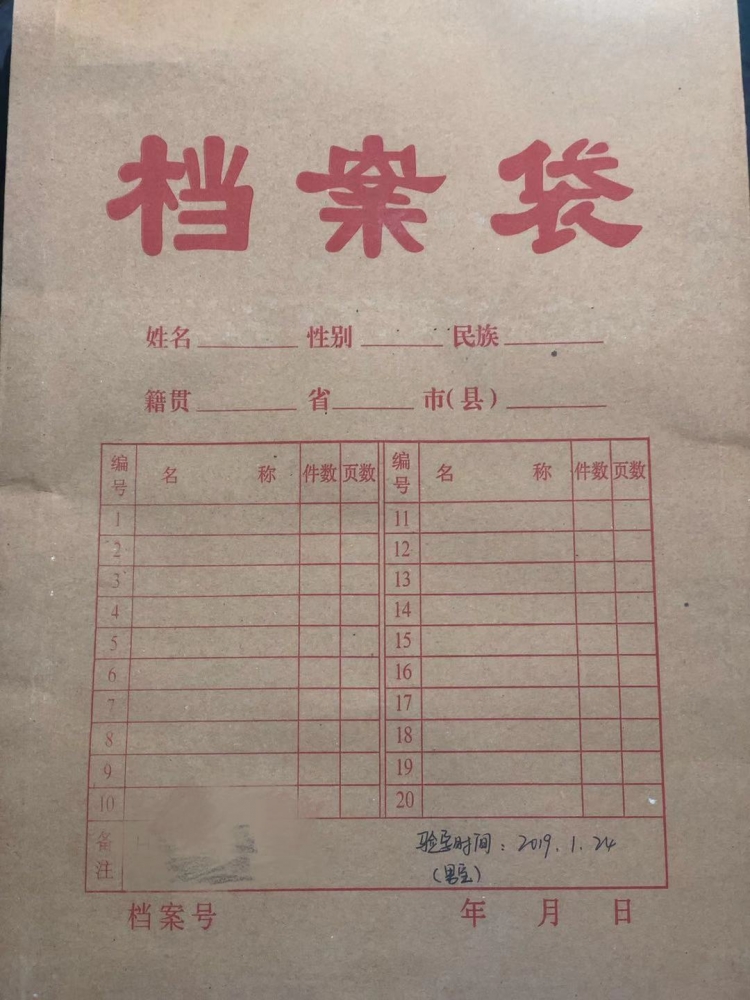 档案袋
姓名 性别 民族
籍贯 省 市(县)
编号 名称 件数 页数 编号 名称 件数 页数
1 11
2 12
3 13
4 14
5 15
6 16
7 17
8 18
9 19
10 20
备注 验室时间：2019.1.24
档案号 年 月 日